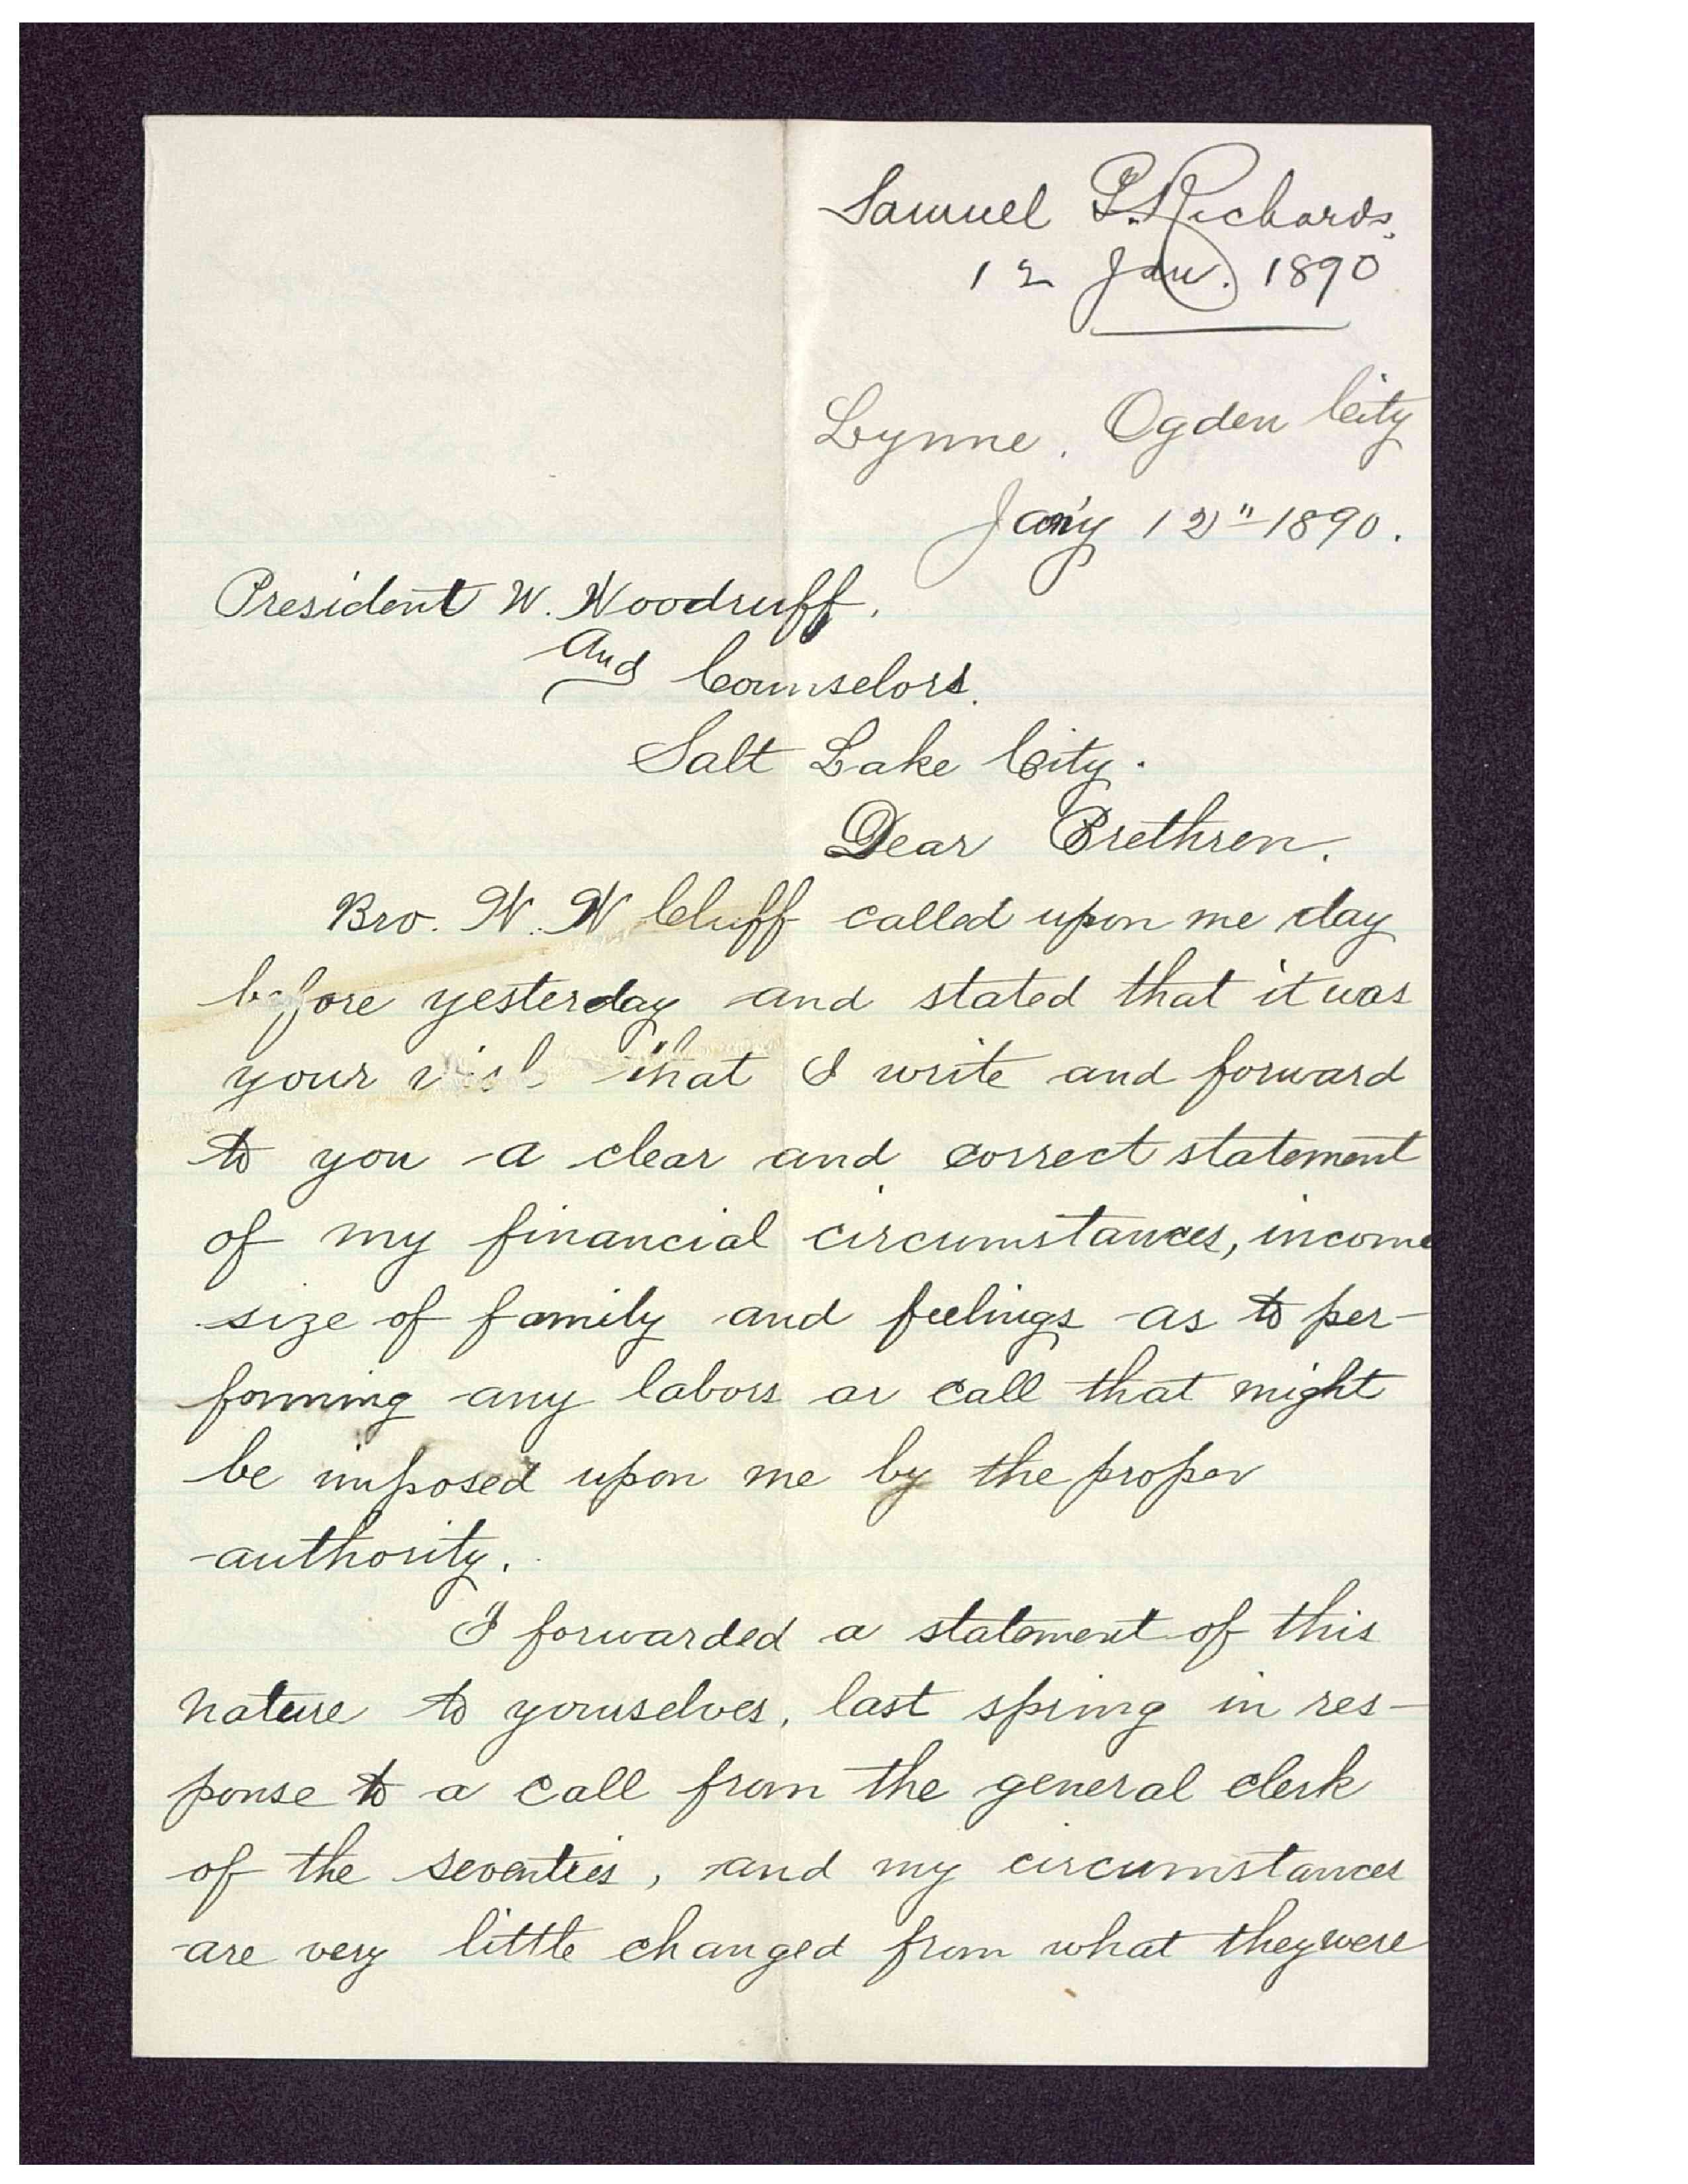 Samuel P. Richards.
12 Jan. 1890
Lynne, Ogden City
Jan'y 12" 1890.
President W. Woodruff,
And Counselors.
Salt Lake City.
Dear Brethren.
Bro. W. W Cluff called upon me day
before yesterday and stated that it was
your wish that I write and forward
to you a clear and correct statement
of my financial circumstances, income
size of family and feelings as to per-
forming any labors or call that might
be imposed upon me by the proper
authority.
I forwarded a statement of this
nature to yourselves, last spring in res-
ponse to a call from the general clerk
of the seventies, and my circumstances
are very little changed from what they were